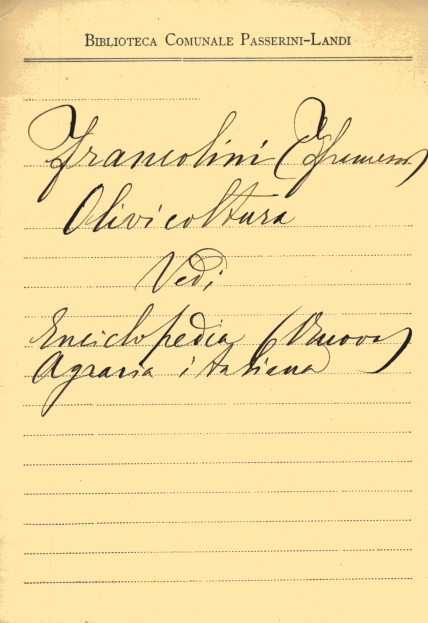 BIBLIOTECA COMUNALE PASSERINI-LANDI
Francolini (Francesco)
Olivicoltura
Vedi
Enciclopedia (Nuova)
Agraria italiana